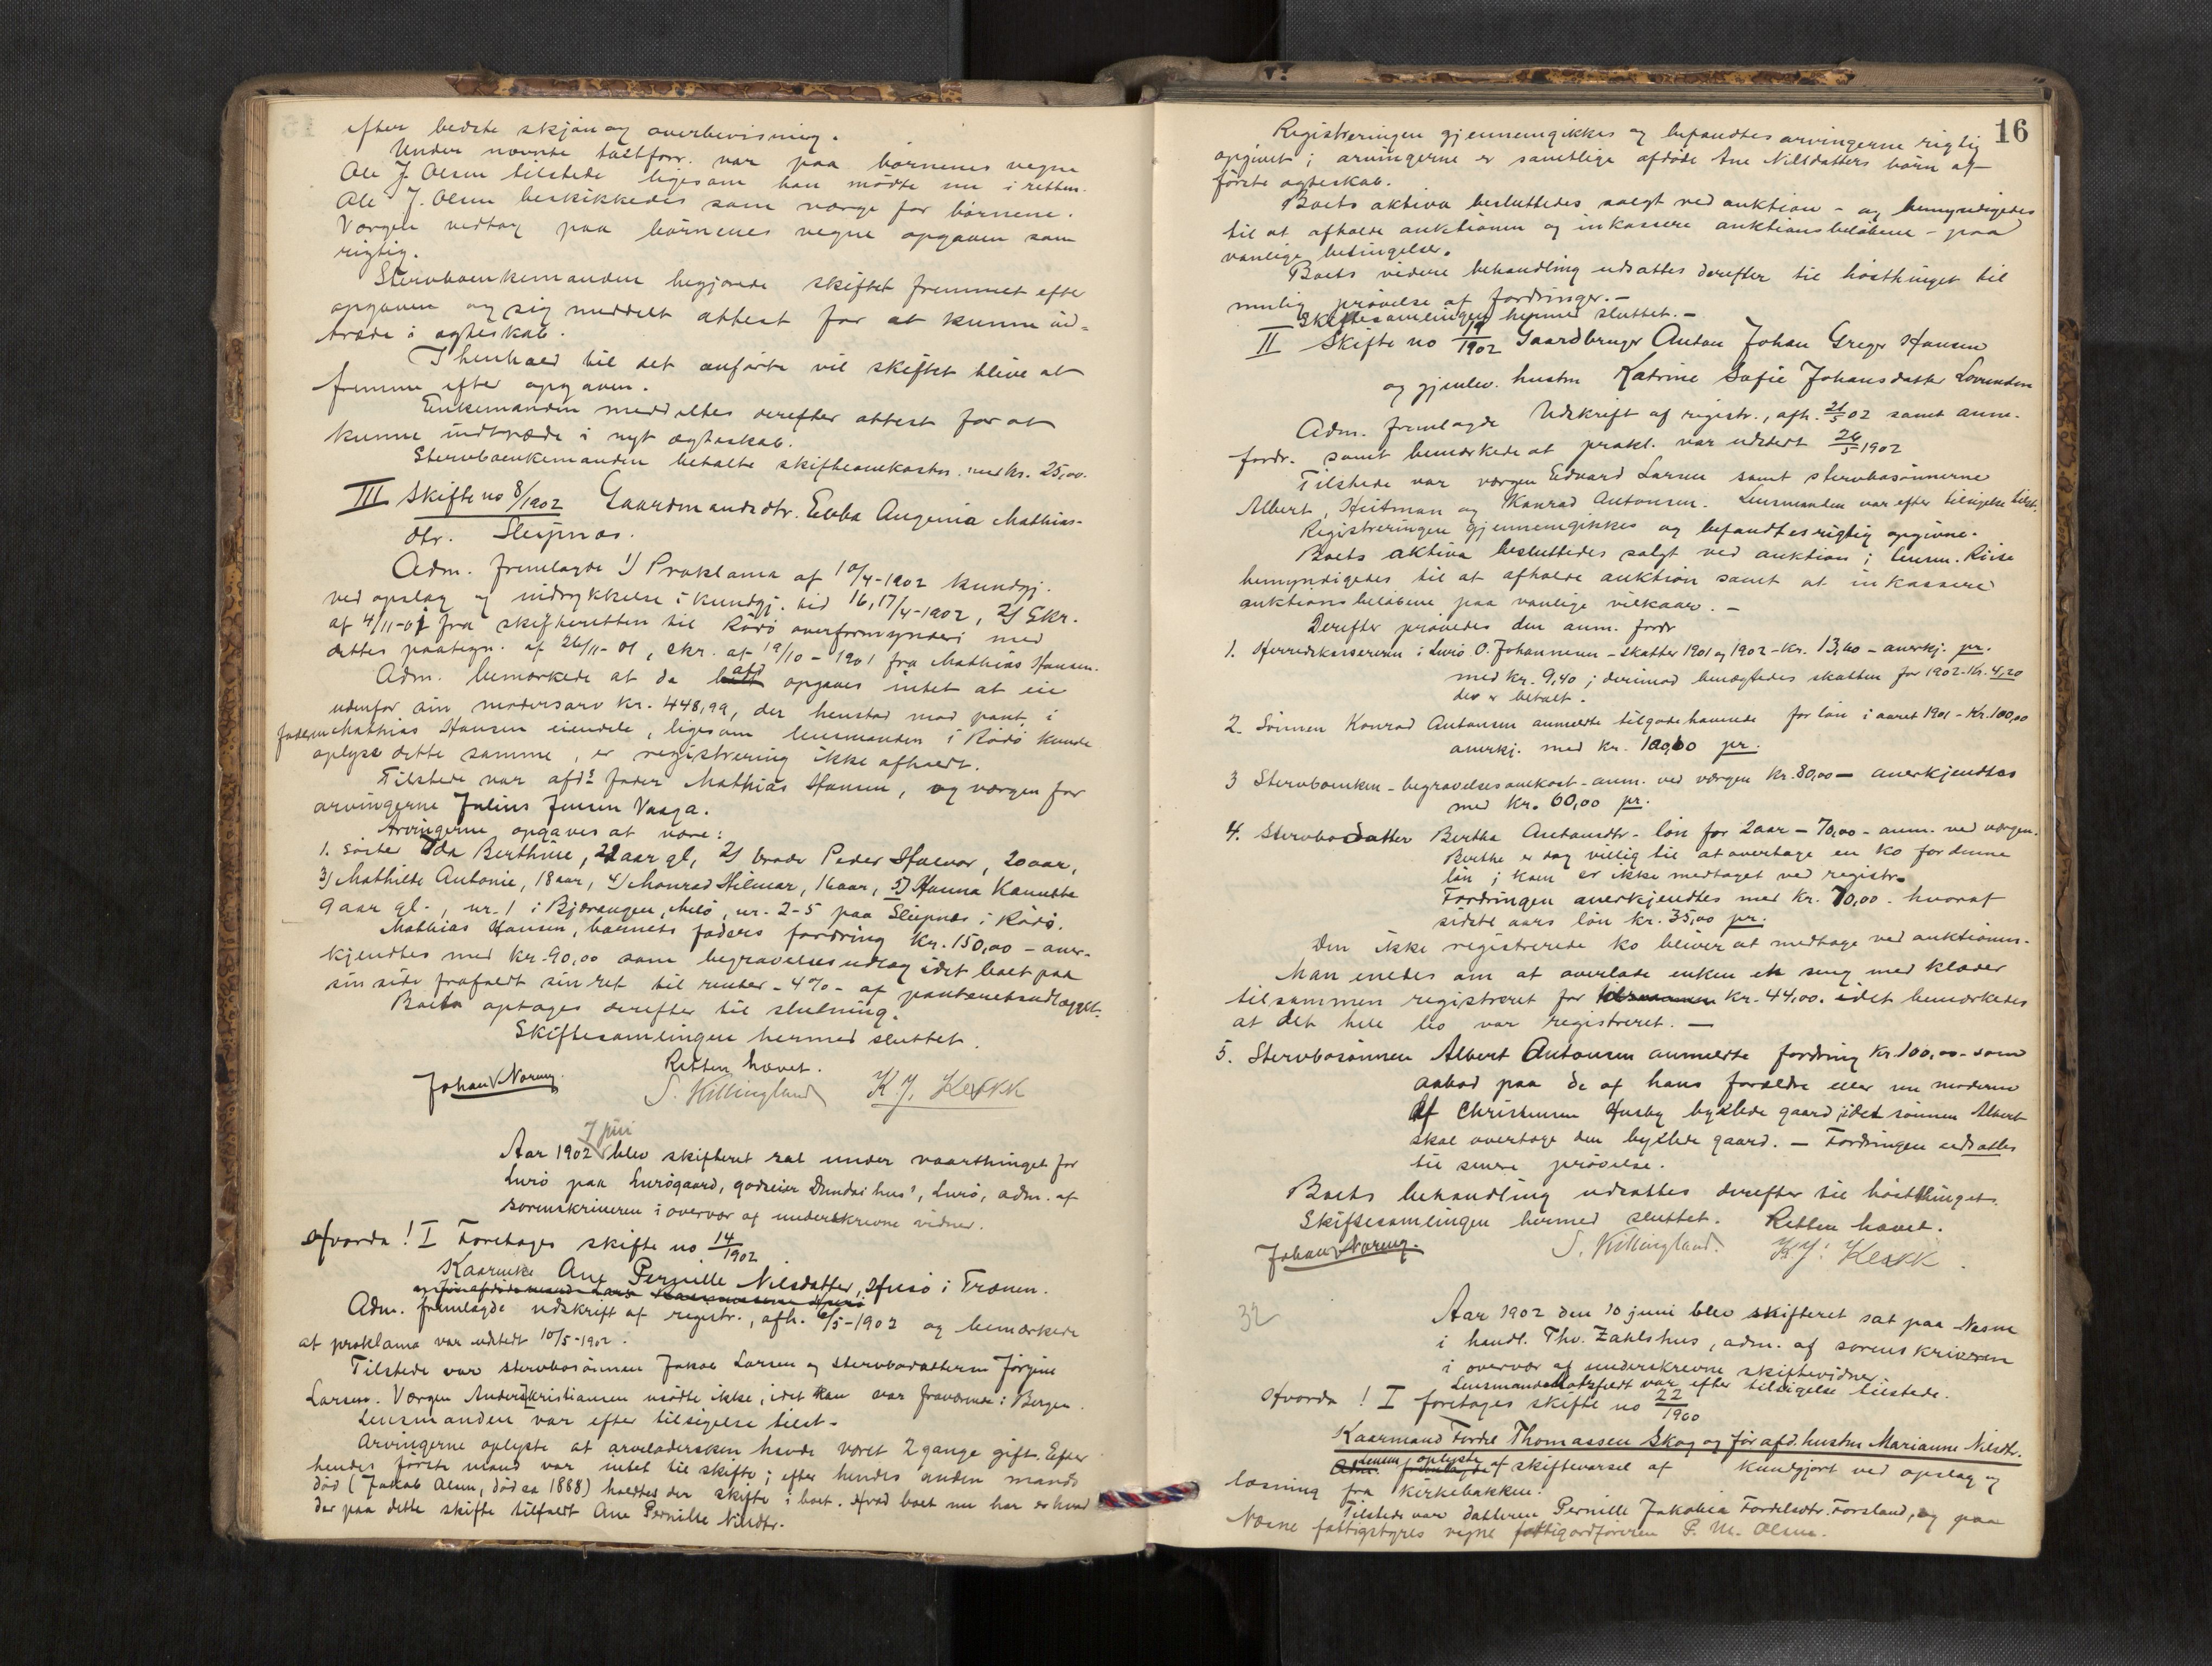 efter bedste skjøn og overbevisning.
Under nævnte taltforr. var paa børnenes vegne
Ole J. Olsen tilstede ligesom han mødte nu i retten.
Ole J. Olsen beskikkedes som verge for børnene.
Vergen vedtog paa børnenes vegne opgaven som
rigtig.
Stervboenkemanden begjærede skiftet fremmet efter
opgaven og sig meddelt attest for at kunne ind-
træde i egteskab.
I henhold til det anførte vil skiftet blive at
fremme efter opgaven.
Enkemanden meddeltes derefter attest for at
kunne indtræde i nyt ægteskab.
Stervboenkemanden betalte skifteomkostn. med kr. 25,00.
III Skifte no 8/1902 Gaardmandsdtr. Ebba Augenia Mathias-
dtr. Sleipnes.
Adm. fremlagde 1) Proklama af 10/4-1902 kundgj.
ved opslag og indrykkelse i kundgj. tid 16,17/4-1902, 2) Skr.
af 4/11-01 fra skifteretten til Rødø overformynderi med
dettes paategn. af 26/11-01, skr. af 19/10-1901 fra Mathias Hansen.
Adm. bemærkede at da afd opgaves intet at eie
udenfor sin modersarv kr. 448,99, der henstod mod pant i
faderen Mathias Hansen eiendele, ligesom lensmanden i Rødø kunde
oplyse dette samme, er registrering ikke afholdt.
Tilstede var afd<sup>s</sup> fader Mathias Hansen, og vergen for
arvingerne Julius Jensen Vaaga.
Arvingerne opgaves at være:
1. søster Oda Berthine, 22 aar gl, 2) broder Peder Halvor, 20 aar,
3) Mathilde Antonie, 18 aar, 4) Monrad Hilmar, 16 aar, 5) Hanna Kannutta
9 aar gl., nr. 1 i Bjærangen, Melø, nr. 2-5 paa Sleipnes i Rødø.
Mathias Hansen, barnets faders fordring kr. 150,00 - aner-
kjendtes med kr. 90,00 som begravelsesudlæg idet boet paa
sin side frafaldt sin ret til renter - 4% - af panteretsudlægget.
Boet optages derefter til slutning.
Skiftesamlingen hermed sluttet.
Retten hævet.
Johan Noreng. S. Killingland K. J. Heskk
7 juni
Aar 1902 blev skifteret sat under vaarthinget for
Lurø paa Lurøgaard, godseier Dundas hus', Lurø, adm. af
sorenskriveren i overvær af underskrevne vidner.
Hvorda! I Foretages skifte no 14/1902
Kaarenke Ane Pernille Nilsdatter, Husø i Trænen.
Adm. fremlagde udskrift af registr., afh. 6/5-1902 og bemærkede
at proklama var udstedt 10/5-1902.
Tilstede var stervbosønnen Jakob Larsen og stervbodatteren Jørgine
Larsen. Vergen Anders Kristiansen mødte ikke, idet han var fraværende i Bergen.
Lensmanden var efter tilsigelse tilst.
Arvingerne oplyste at arveladersken havde været 2 gange gift. Efter
hendes første mand var intet til skifte; efter hendes anden mands
død (Jakob Olsen, død ca 1888) holdtes der skifte i boet. Hvad boet nu har er hvad
der paa dette skifte tilfaldt Ane Pernille Nilsdtr.
16
Registreringen gjennemgikkes og befandtes arvingerne rigtig
opgivet; arvingerne er samtlige afdøde Ane Nilsdatters børn af
første egteskab.
Boets aktiva besluttedes solgt ved auktion - og bemyndigedes
til at afholde auktionen og inkassere auktionsbeløbene - paa
vanlige betingelser.
Boets videre behandling udsattes derefter til høstthinget til
mulig prøvelse af fordringer.-
Skiftesamlingen hermed sluttet.-
II Skifte no 19/1902 Gaardbruger Anton Johan Greger Hansen
og gjenlev. hustru Katrine Sofie Johansdatter Lovunden
Adm. fremlagde Udskrift af registr., afh. 21/5 02 samt anm.
fordr. samt bemærkede at prokl. var udstedt 26/5 1902
Tilstede var vergen Edvard Larsen samt stervbosønnerne
Albert, Heitman og Konrad Antonsen. Lensmanden var efter tilsigelse tilst.
Registreringen gjennemgikkes og befandtes rigtig opgivne.
Boets aktiva besluttedes solgt ved auktion; lensm. Riise
bemyndigedes til at afholde auktion samt at inkassere
auktionsbeløbene paa vanlige vilkaar.-
Derefter prøvedes den anm. fordr
1. Herredskassereren i Lurø O. Johannesen - skatter 1901 og 1902 - kr. 13,60 - anerkj. pr.
med kr. 9,40; derimod benægtedes skatten for 1902 - kr. 4,20
der er betalt.
2. Sønnen Konrad Antonsen anmeldte tilgodehavende for løn i aaret 1901 - kr. 100,00
anerkj. med kr. 100,00 pr.
3 Stervboenken - begravelsesomkost - anm. ved vergen kr. 80,00 - anerkjendtes
med kr. 60,00 pr.
4. Stervbodatter Berthe Antonsdtr - løn for 2 aar - 70,00 - anm. ved vergen.
Berthe er dog villig til at overtage en ko for denne
løn; koen er ikke medtaget ved registr.
Fordringen anerkjendtes med kr. 70,00. hvoraf
sidste aars løn kr. 35,00 pr.
Den ikke registrerede ko bliver at medtage ved auktionen.
Man enedes om at overlade enken en seng med klæder
tilsammen registreret for kr. 44,00. idet bemærkedes
at det hele bo var registreret.-
5. Stervbosønnen Albert Antonsen anmeldte fordring kr. 100,00 - som
aabod paa de af hans forældre eller nu moderen
af Christensen Husby byxlede gaard, idet sønnen Albert
skal overtage den byxlede gaard. - Fordringen udsattes
til senere prøvelse.
Boets behandling udsattes derefter til høstthinget.
Skiftesamlingen hermed sluttet. Retten hævet.
Johan Noreng. S. Killingland. K. J. Heskk.
32
Aar 1902 den 10 juni blev skifteret sat paa Nesne
i handl. Thv. Zahls hus, adm. af sorenskriveren
i overvær af underskrevne skiftevidner.
Lensmand var efter tilsigelse tilstede.
Hvorda! I foretages skifte no 22/1900
Kaarmand Fordel Thomassen Skog og før afd. hustru Marianne Nilsdtr.
Lensm. oplyste af skiftevarsel af kundgjort ved opslag og
læsning fra kirkebakken.
Tilstede var datteren Pernille Jakobea Fordelsdtr. Forsland, og paa
Nesne fattigstyres vegne fattigordføreren P. M. Olsen.